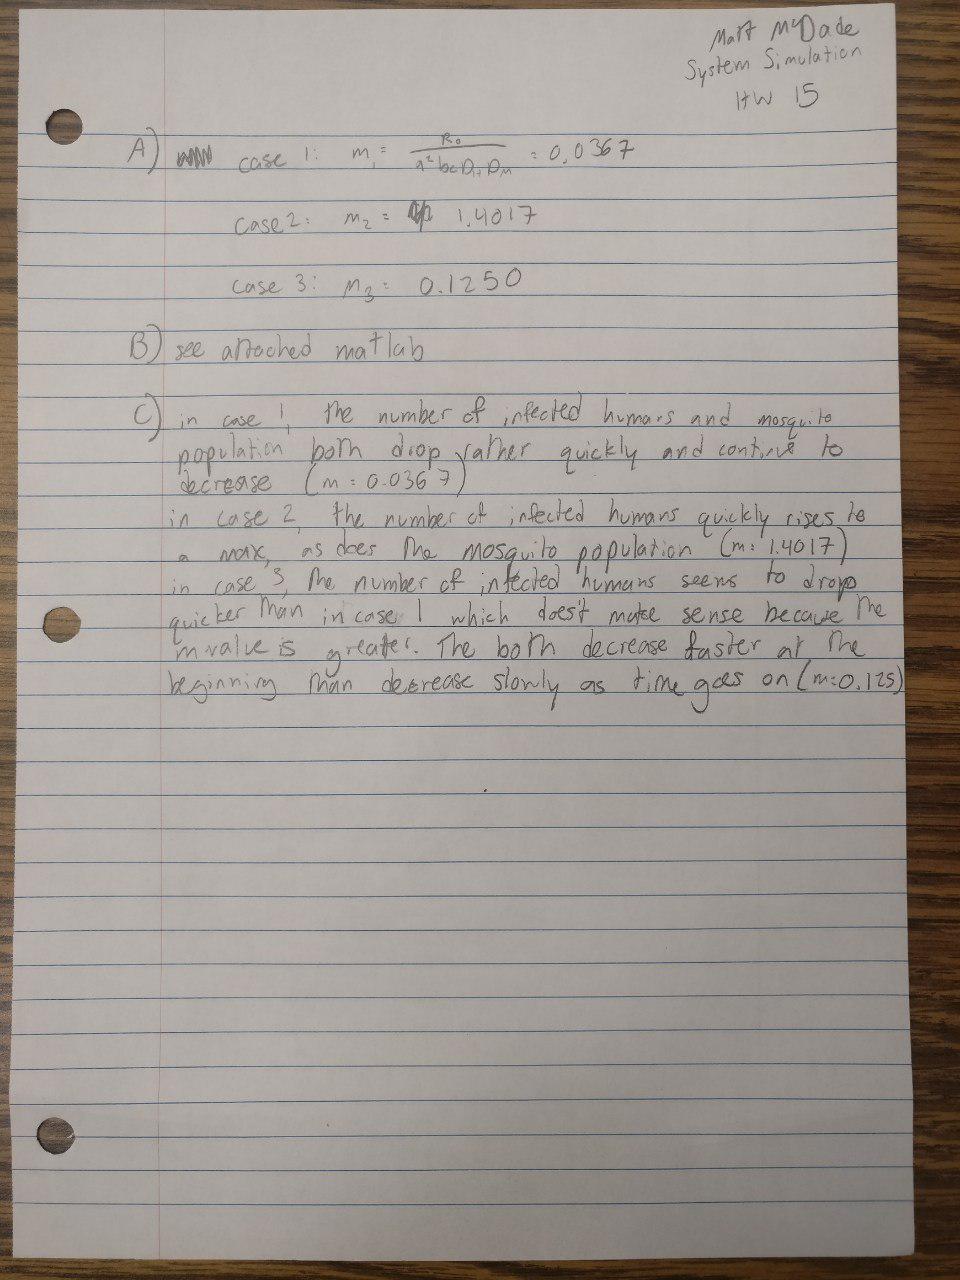 Matt McDade
System Simulation
HW 15
A) case 1: m₁ = R₀ / a²bcDₕDₘ = 0.0367
case 2: m₂ = 1.4017
case 3: m₃ = 0.1250
B) see attached matlab
C) in case 1, the number of infected humans and mosquito
population both drop rather quickly and continue to
decrease (m = 0.0367)
in case 2, the number of infected humans quickly rises to
a max, as does the mosquito population (m = 1.4017)
in case 3, the number of infected humans seems to drop
quicker than in case 1 which does't make sense because the
m value is greater. The both decrease faster at the
beginning than decrease slowly as time goes on (m=0.125)